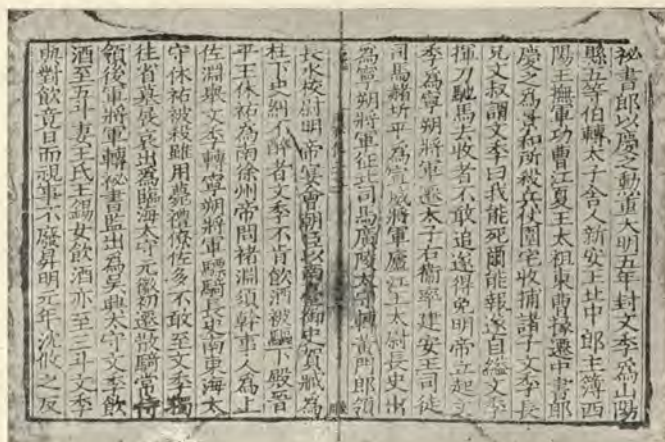 祕書郎以慶之勳重大明五年封文季爲山陽
縣五等伯轉太子舍人新安王北中郎主簿西
陽王撫軍功曹江夏王太尉東曹掾遷中書郎
慶之爲景和所殺兵仗圍宅收捕諸子文季長
兄文叔謂文季曰我能死爾能報遂自縊文季
揮刀馳馬去收者不敢追遂得免明帝立起文
季爲寧朔將軍遷太子右衞率建安王司徒
司馬赭圻平爲宣威將軍廬江王太尉長史出
爲寧朔將軍征北司馬廣陵太守轉黃門郎領
長水校尉明帝宴會朝臣以南臺御史賀臧爲
柱下史糾不醉者文季不肯飲酒被驅下殿晉
平王休祐爲南徐州帝問褚淵須幹事人爲上
佐淵舉文季轉寧朔將軍驃騎長史南東海太
守休祐被殺雖用薨禮僚佐多不敢至文季獨
往省墓展哀出爲臨海太守元徽初遷散騎常侍
領後軍將軍轉祕書監出爲吳興太守文季飲
酒至五斗妻王氏王錫女飲酒亦至三斗文季
與對飲竟日而視事不廢昇明元年沈攸之反